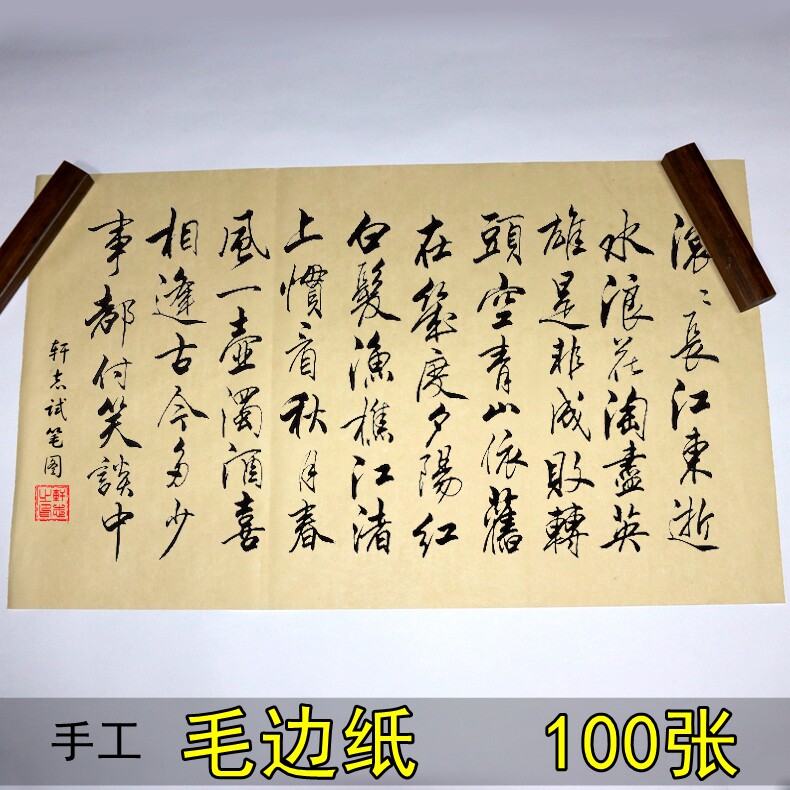 滚〻長江東逝
水浪花淘盡英
雄是非成敗轉
頭空青山依舊
在幾度夕陽红
白髮漁樵江渚
上慣看秋月春
風一壺濁酒喜
相逢古今多少
事都付笑談中
轩志试笔图
手工 毛边纸 100张